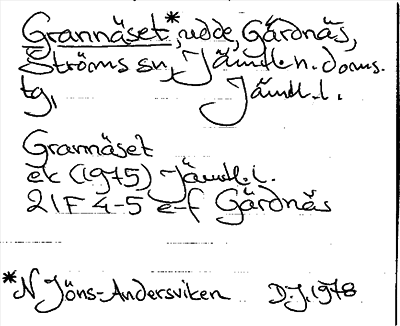 Grannäset*, udde, Gärdnäs,
Ströms sn, Jämtl. n. doms.
tg, Jämtl. l.
Grannäset
ek (1975) Jämtl. l.
21F 4-5 e-f Gärdnäs
*N Jöns-Andersviken D.J. 1978